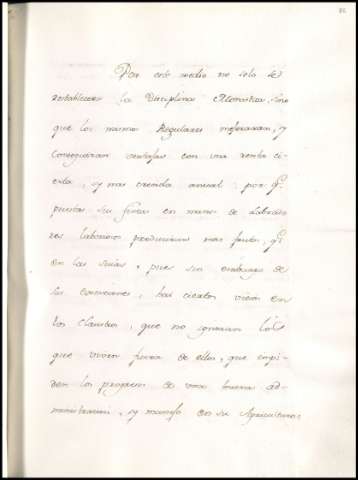 Por este medio no solo se
restableceria la Disciplina Monastica, sino
que los mismos Regulares mejoraran, y
conseguiran ventajas con una renta ci-
erta, y mas crecida anual: porq.e
puestas sus fincas en manos de Labrado
res laboriosos produciran mas frutos, q.e
en las suias, pues sin embargo de
sus exenciones, hai ciertos vicios en
los Claustros, que no ignoran los
que viven fuera de ellos, que impi-
den los progresos de una buena ad-
ministracion, y manejo en su Agricultura